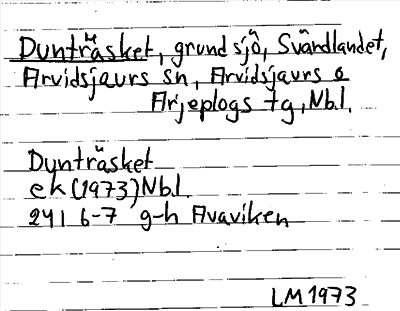 Dunträsket, grund sjö, Svärdlandet,
Arvidsjaurs sn, Arvidsjaurs o
Arjeplogs tg, Nbl.
Dunträsket
ek (1973) Nbl.
24I 6-7 g-h Avaviken
LM 1973